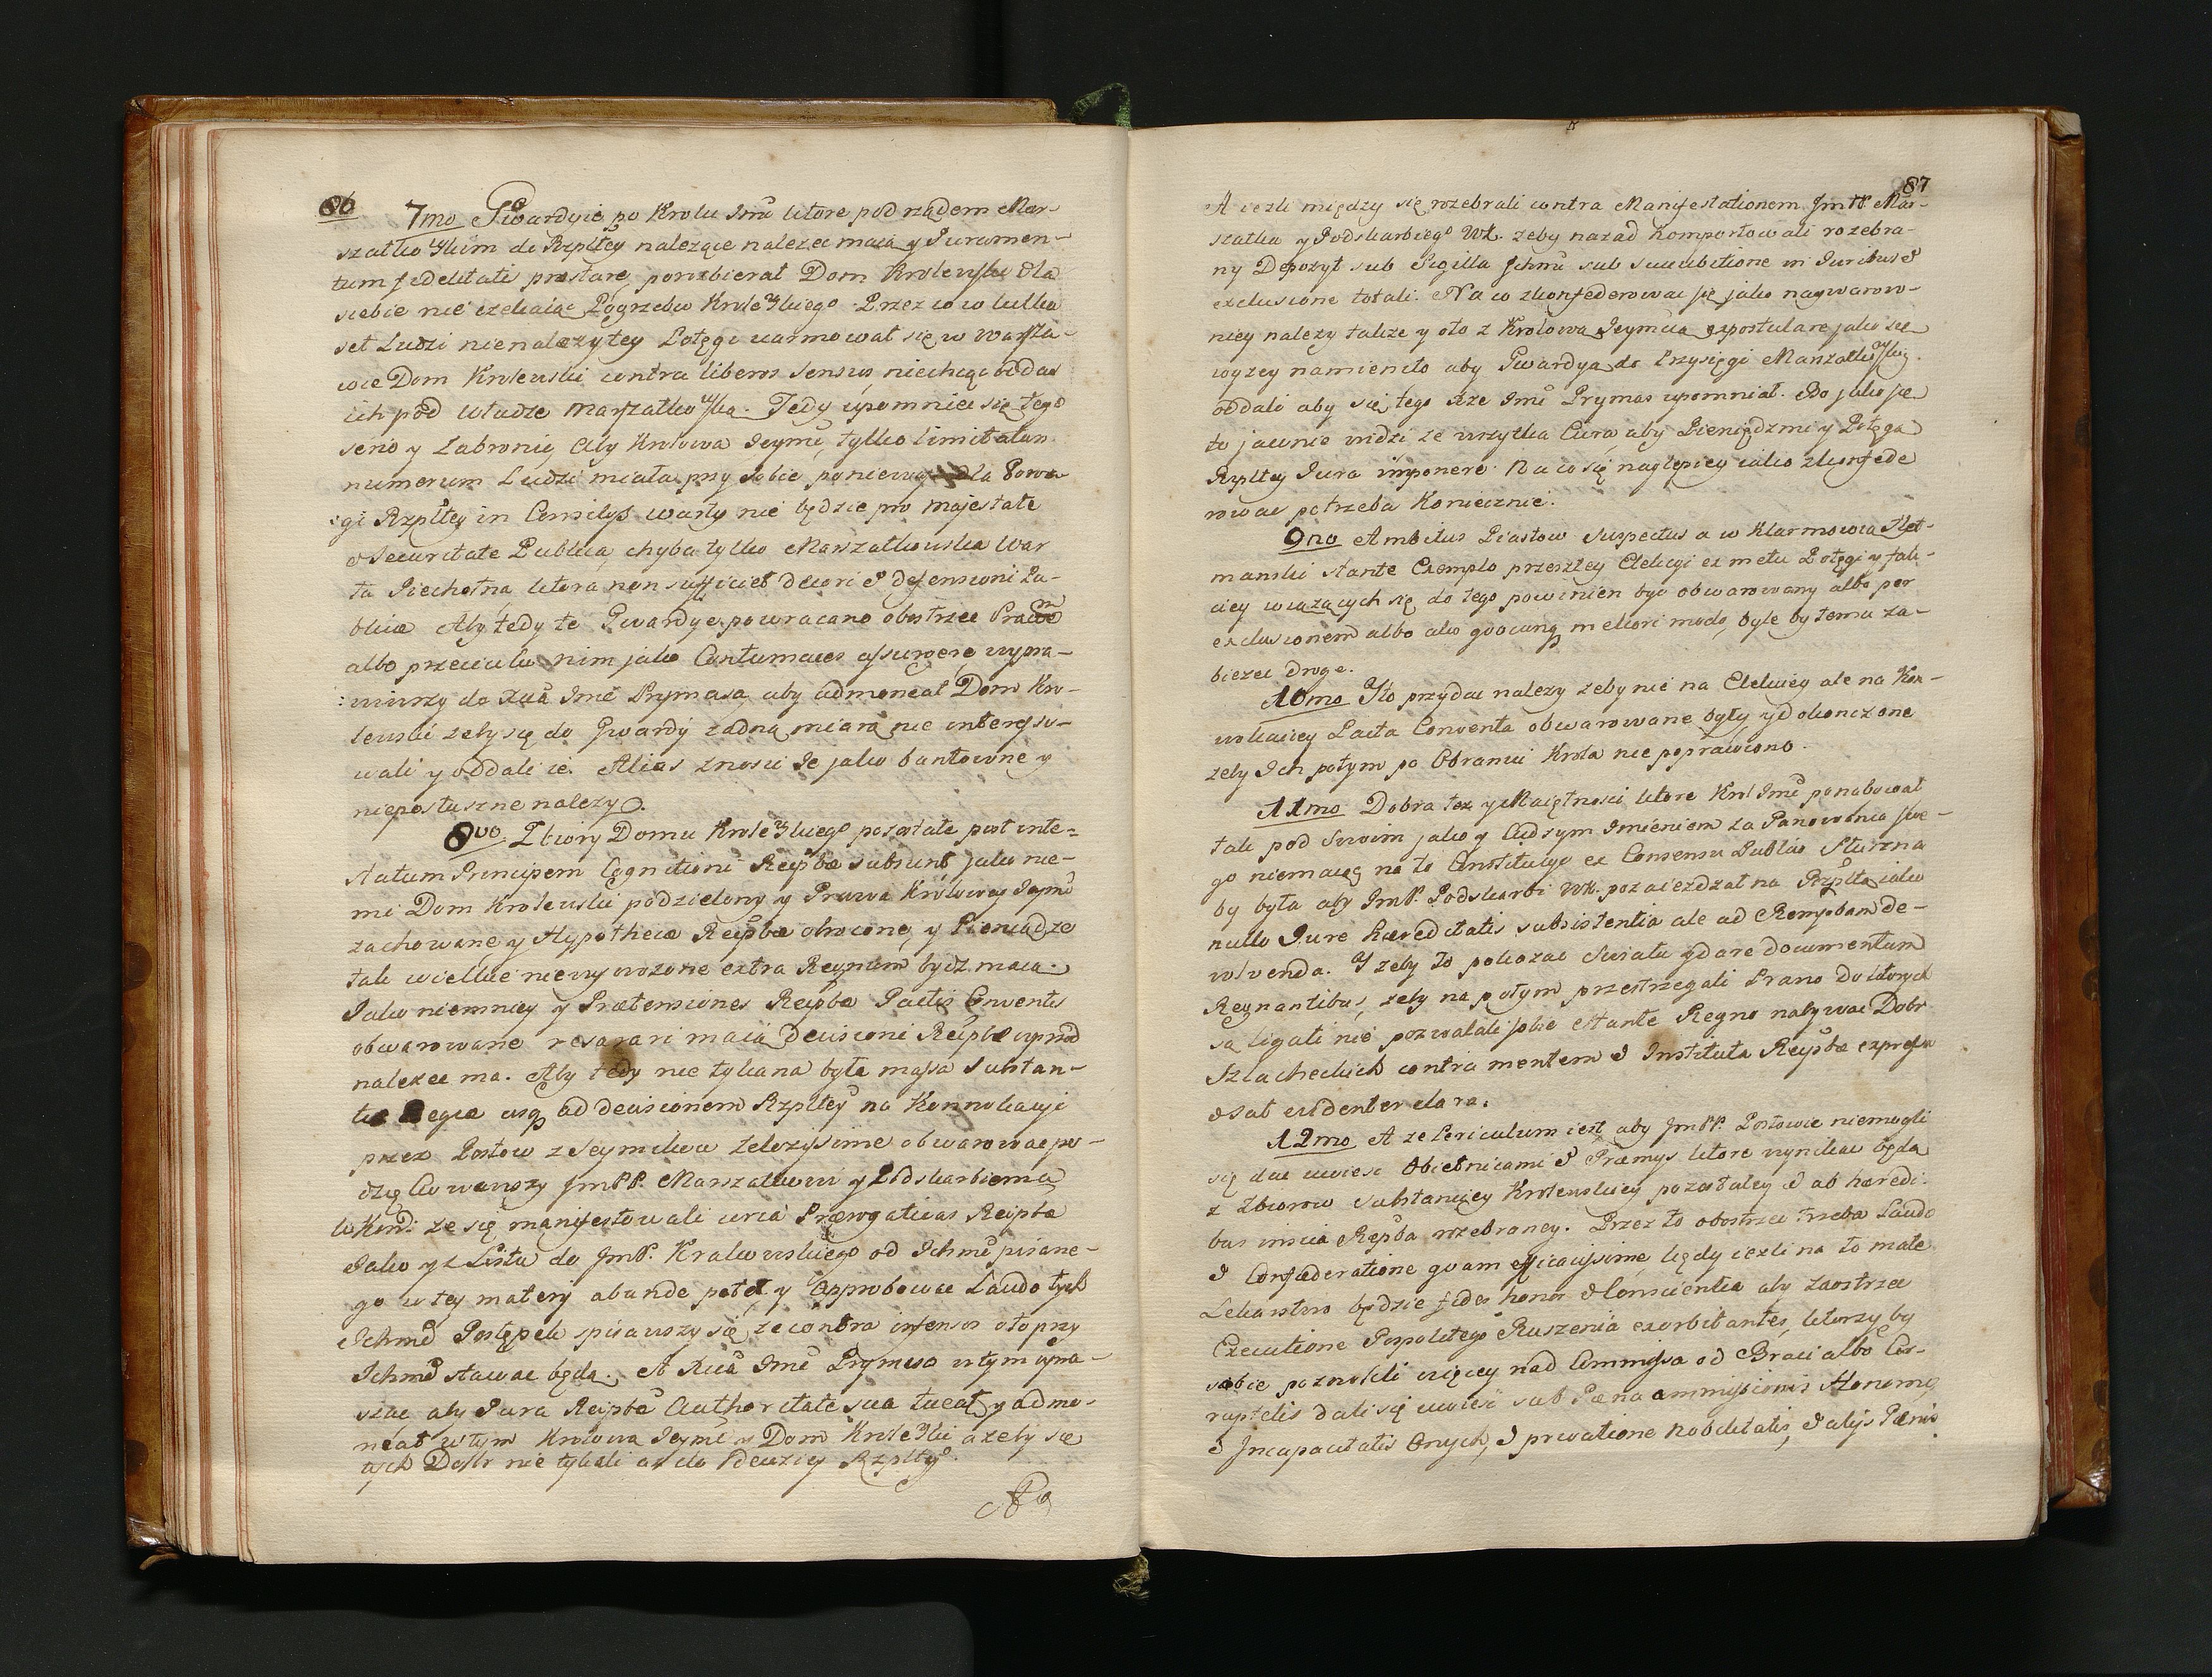 86
7mo Gwardyie po Krolu Jmci ktore pod rządem Mar-
szałkowskim do Rzpltey nalezące nalezec maią y Juramen-
tum fidelitatis præstare, porozbierał Dom Krolewski dla
siebie nie czekaiąc Pogrzebu Krolewskiego. Przez co w kilku
set Ludzi nienalezytey Potęgi uarmował się w Warsza-
wie Dom Krolewski contra liberos sensus, niechcąc oddac
ich pod władze Marszałkowską. Tedy upomniec się tego
serio y Zabronic, Aby Krolowa Jeymc, tylko limitatum
numerum Ludzi miała przy sobie poniewaz dla Powa-
gi Rzpltey in Consilys warty nie będzie pro Majestate
& Securitate Publica, chyba tylko Marszałkowska War
ta Piechotna, ktora non sufficiet decori & defensioni Pu-
blicæ Aby tedy te Gwardye powracano obostrzec Prawem
albo przeciwko nim jako Contumaces assumere wypra-
wiwszy do Xcia Jmci Prymasa, aby admoneat Dom Kro-
lewski zeby się do Gwardy zadną miarą nie interesso-
wali y oddali ie. Alias znosic Je jako bantowne y
nieposłuszne nalezy.
8vo. Zbiory Domu Krolewskiego pozostałe post inte-
statum Principem Cognitioni Reipbæ subsunt, jako nie-
mi Dom Krolewski podzielony y Prawa Krolowey Jeymci
zachowane y Hypotheca Reipbæ obrocone, y Pieniądze
tak wielkie niewywozone extra Regnum bydz maią.
Jako niemniey y Prætensiones Reipbæ Pactis Conventis
obwarowane resarari maią Decisioni Reipbæ wprzod
nalezec ma. Aby tedy nie tykana była massa Substan-
tiæ Regiæ usq ad decisionem Rzpltey na Konwokacyi
przez Posłow z Seymikow zelozissime obwarowac po-
dzię Kowawszy JmPP. Marszałkowi y Podskarbiemu
W Kor: ze się manifestowali circa Prærogativas Reipbæ
Jako y z Listu do JmP. Krakowskiego od Ichmc pisane-
go w tey matery abunde patet y Approbowac Laudo tych
Ichmc Postępek spisawszy się ze contra infensos oto przy
Ichmc stawac będą. A Xcia Jmci Prymasa w tym upra-
szac aby Jura Reipbæ Authoritate sua tueat y admo-
neat w tym Krolowa Jeymc y Dom Krolewski azeby się
tych Dobr nie tykali az do Decyziey Rzpltey.
A
87
A iezli między się rozebrali contra Manifestationem JmPP. Mar-
szałka y Podskarbiego Wk. zeby nazad Komportowali rozebra-
ny Depozyt sub Sigilla Ichmc sub succubitione in Juribus &
exclusione totali. Na co skonfederowac się jako naywarow-
niey nalezy także y oto z Krolową Jeymcia expostulare jako się
wyzey namieniło aby Gwardya do Przysięgi Marszałkowskiey
oddali aby się tego Xze Jmc Prymas upomniał. Bo jako się
to jawnie widzi ze wszytka Cura, aby Pieniędzmi y Potęgą
Rzpltey Jura imponere. Na co się naylepiey iako skonfede
rowac potrzeba Koniecznie.
9no Ambitus Piastow Suspectus a w Klarmowia Het-
manski stante Exemplo przeszłey Elekcyi ex metu Potęgi y fak-
cyey wiązących się do tego powinien byc obwarowany albo per
exclusionem albo ako quocunq meliori modo, byle by temu za-
biezec droge.
10mo Jto przydac nalezy zeby nie na Elekcyey ale na Kon-
wokacyey Pacta Conventa obwarowane były y dokonczone
zeby Ich potym po Obraniu Krola nie poprawiono.
11mo Dobra tez y Maiętnosci ktore Krol Jmc ponabował
tak pod Swoim jako y Cudzym Imieniem za Panowania swe-
go niemaiąc na to Constitucyi ex Consensu Publico Słuszna
by była aby JmP. Podskarbi Wk. pozaiezdzał na Rzpltą iako
nullo Jure hæreditatis subsistentia ale ad Rempbam de-
volvenda. Y zeby to pokazac Swiatu y dare documentum
Regnantibus, zeby na potym przestrzegali Prawo do ktorych
są ligati nie pozwalali sobie stante Regno nabywac Dobr
Szlacheckich contra mentem & Instituta Reipbæ expressa
& sat evidenter clara.
12mo A ze Periculum iest aby JmPP. Posłowie niemogli
się dac uwiesc Obietnicami & Præmys, ktore wynikac będą
z Zbiorow substancyey Krolewskiey pozostałey & ab hæredi-
bus inscia Repba rozebraney. Przez to obostrzec trzeba Laudo
& Confæderatione quam efficacissime, kędy iezli na to małe
Lekarstwo będzie fides honor & Conscientia aby zaostrzec
Executione Pospolitego Ruszenia exorbitantes, ktorzy by
sobie pozwolili więcey nad Commissa od Braci albo Cor-
ruptelis dali się uwiesc sub Pæna ammissionis Honorum
& Incapacitatis Onych, & privatione Nobilitatis, & alys Pænis